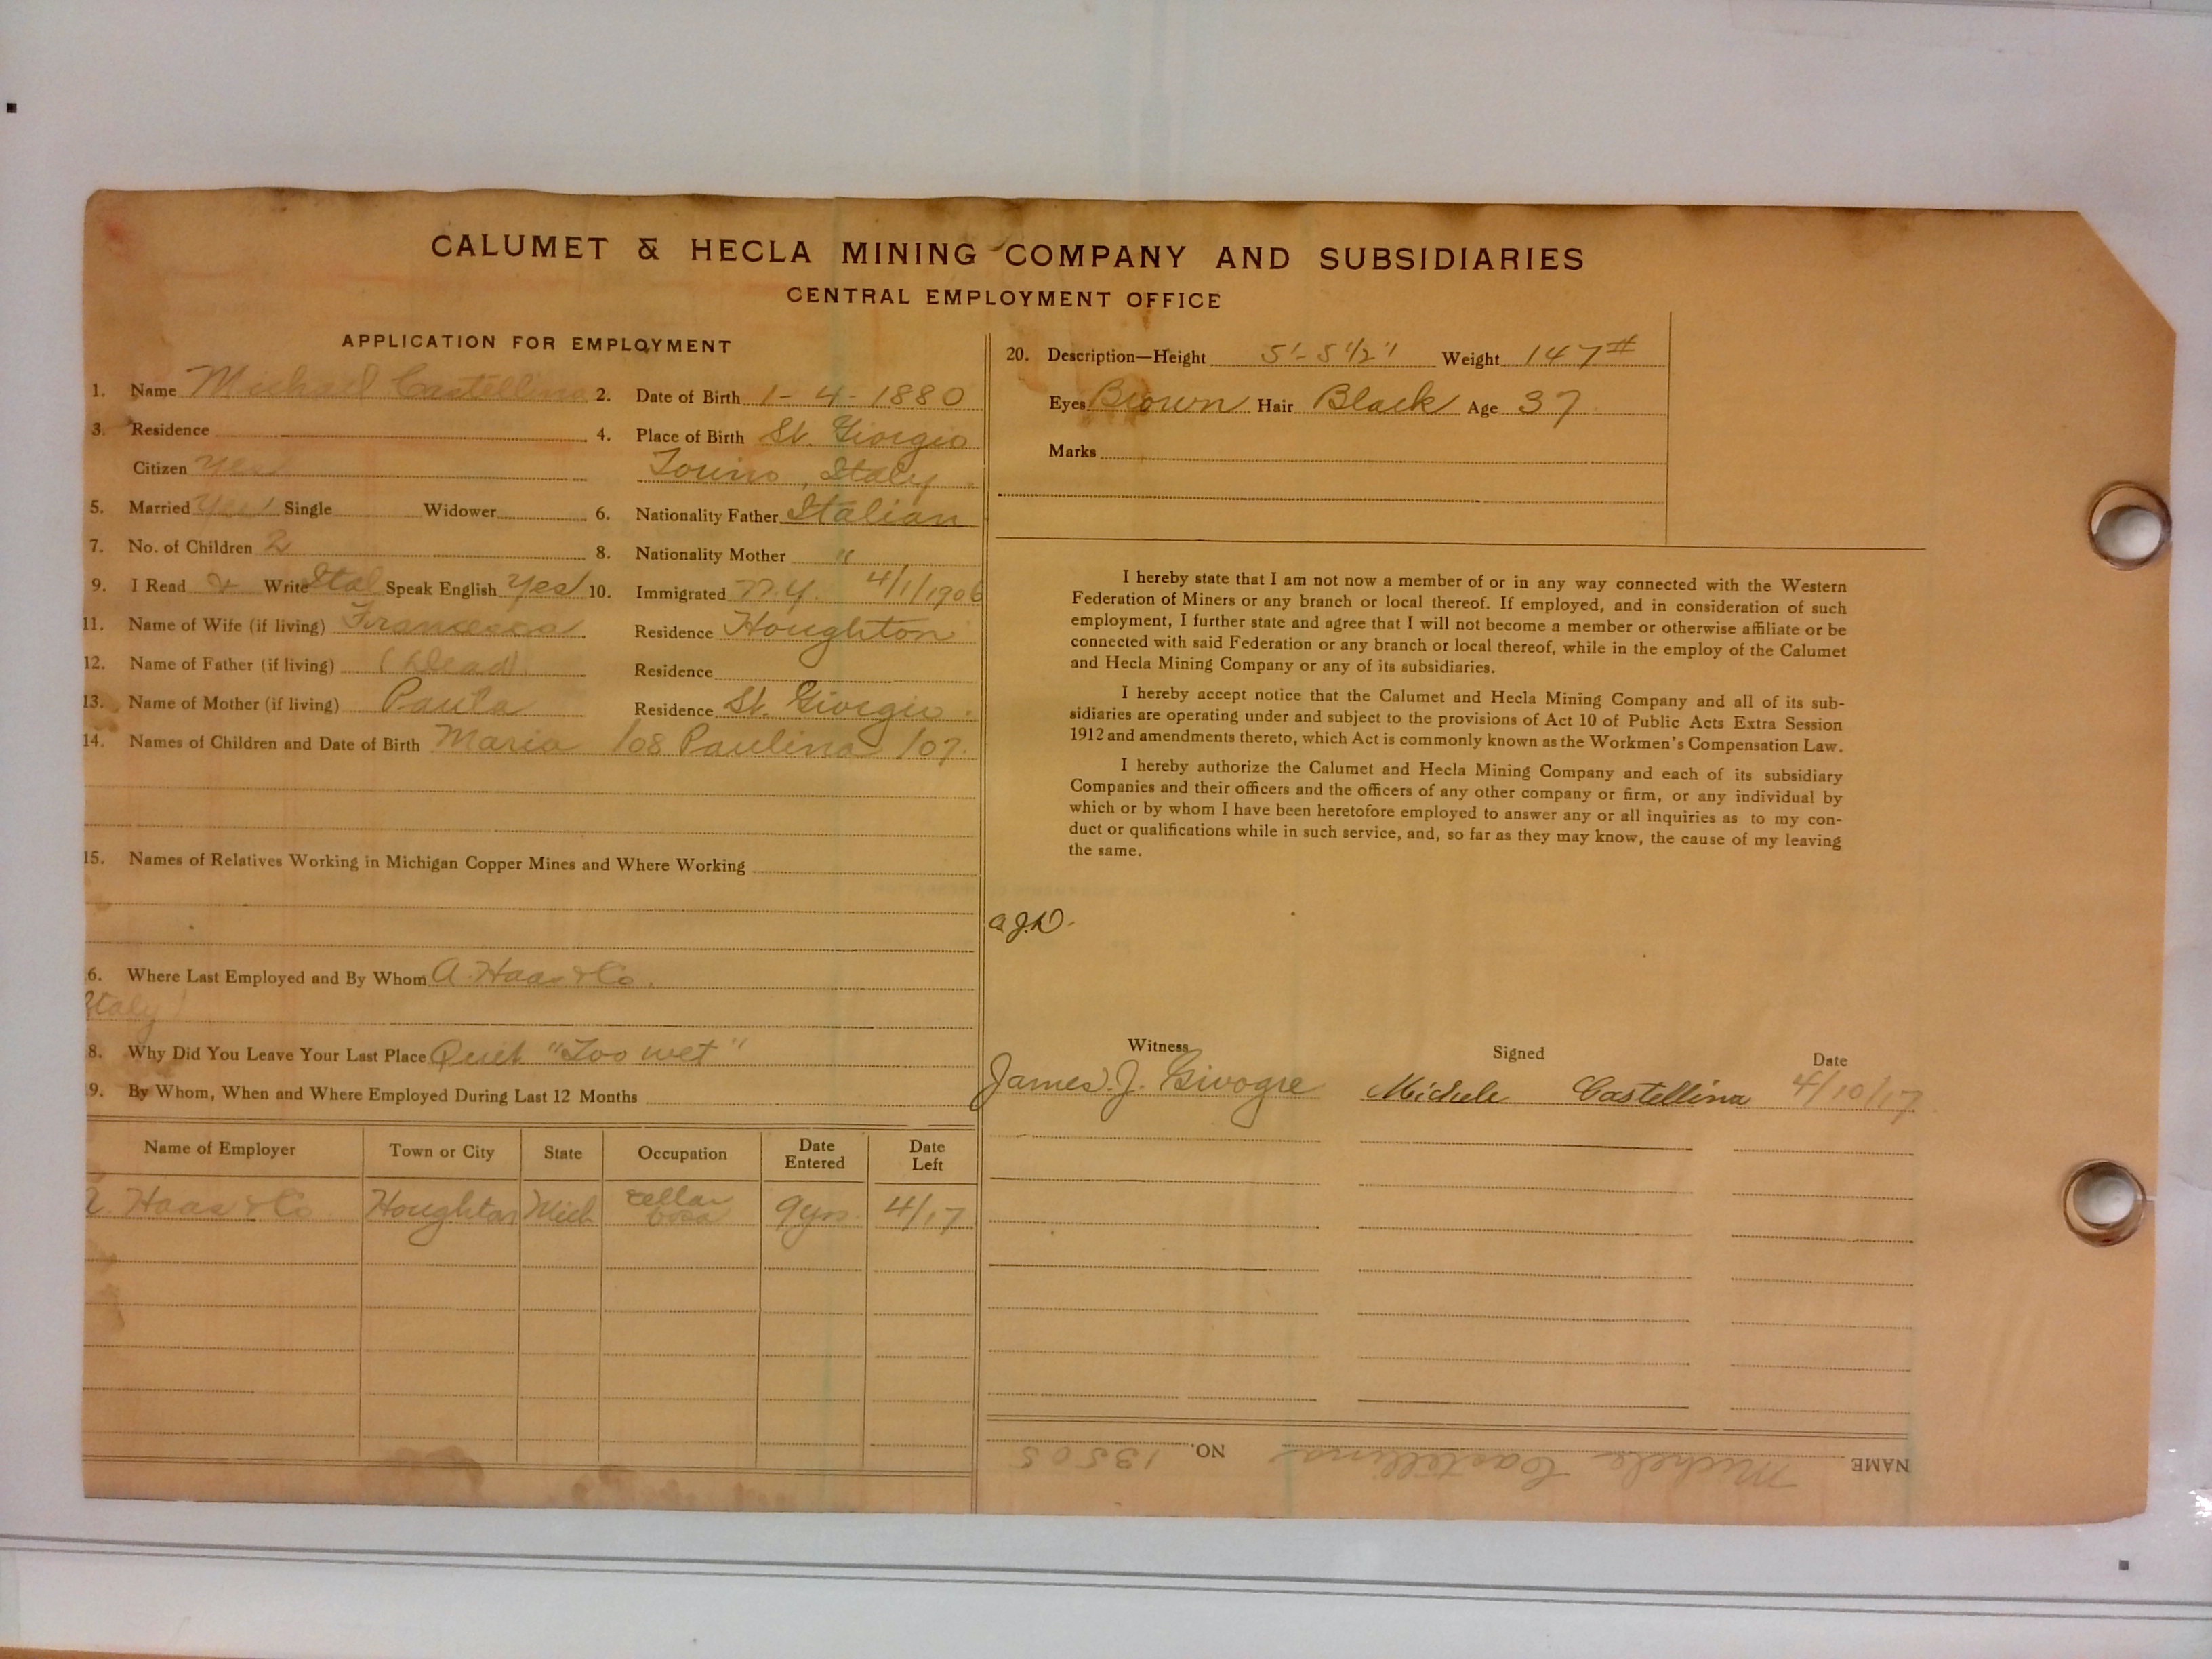 CALUMET & HECLA MINING COMPANY AND SUBSIDIARIES
CENTRAL EMPLOYMENT OFFICE
APPLICATION FOR EMPLOYMENT
1. Name Michael Castellina 2. Date of Birth 1-4-1880
3. Residence 4. Place of Birth St. Giorgio
Citizen Yes Torino, Italy
5. Married Yes Single Widower 6. Nationality Father Italian
7. No. of Children 2 8. Nationality Mother "
9. I Read & Write Ital Speak English Yes 10. Immigrated N.Y. 4/1/1906
11. Name of Wife (if living) Francesca Residence Houghton
12. Name of Father (if living) (Dead) Residence
13. Name of Mother (if living) Paula Residence St. Giorgio.
14. Names of Children and Date of Birth Maria /08 Paulina /07.
15. Names of Relatives Working in Michigan Copper Mines and Where Working
6. Where Last Employed and By Whom A. Haas & Co.
Italy
8. Why Did You Leave Your Last Place Quit "Too wet"
9. By Whom, When and Where Employed During Last 12 Months
Name of Employer Town or City State Occupation Date Entered Date Left
A. Haas & Co Houghton Mich cellar boss 9 yrs. 4/17
20. Description—Height 5'-5 1/2" Weight 147#
Eyes Brown Hair Black Age 37
Marks
I hereby state that I am not now a member of or in any way connected with the Western
Federation of Miners or any branch or local thereof. If employed, and in consideration of such
employment, I further state and agree that I will not become a member or otherwise affiliate or be
connected with said Federation or any branch or local thereof, while in the employ of the Calumet
and Hecla Mining Company or any of its subsidiaries.
I hereby accept notice that the Calumet and Hecla Mining Company and all of its sub-
sidiaries are operating under and subject to the provisions of Act 10 of Public Acts Extra Session
1912 and amendments thereto, which Act is commonly known as the Workmen's Compensation Law.
I hereby authorize the Calumet and Hecla Mining Company and each of its subsidiary
Companies and their officers and the officers of any other company or firm, or any individual by
which or by whom I have been heretofore employed to answer any or all inquiries as to my con-
duct or qualifications while in such service, and, so far as they may know, the cause of my leaving
the same.
Witness Signed Date
James J. Givogre Michele Castellina 4/10/17
NAME Michele Castellina NO. 13505